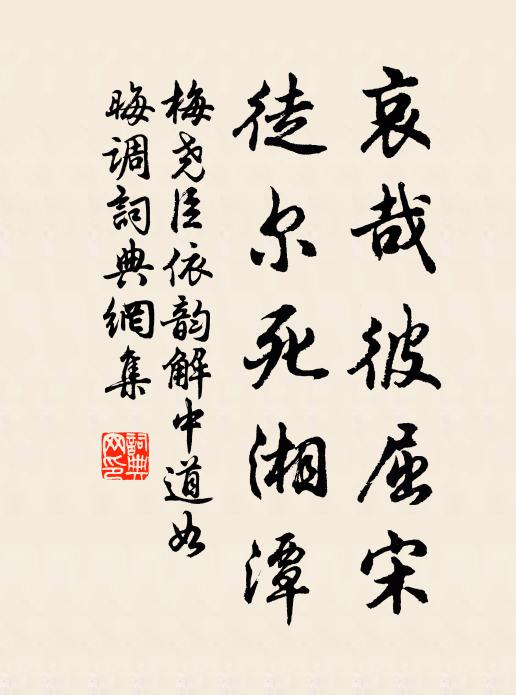 哀哉彼屈宋
徒尔死湘潭
梅尧臣依韵解中道如
晦调詞典網集
詞典網印